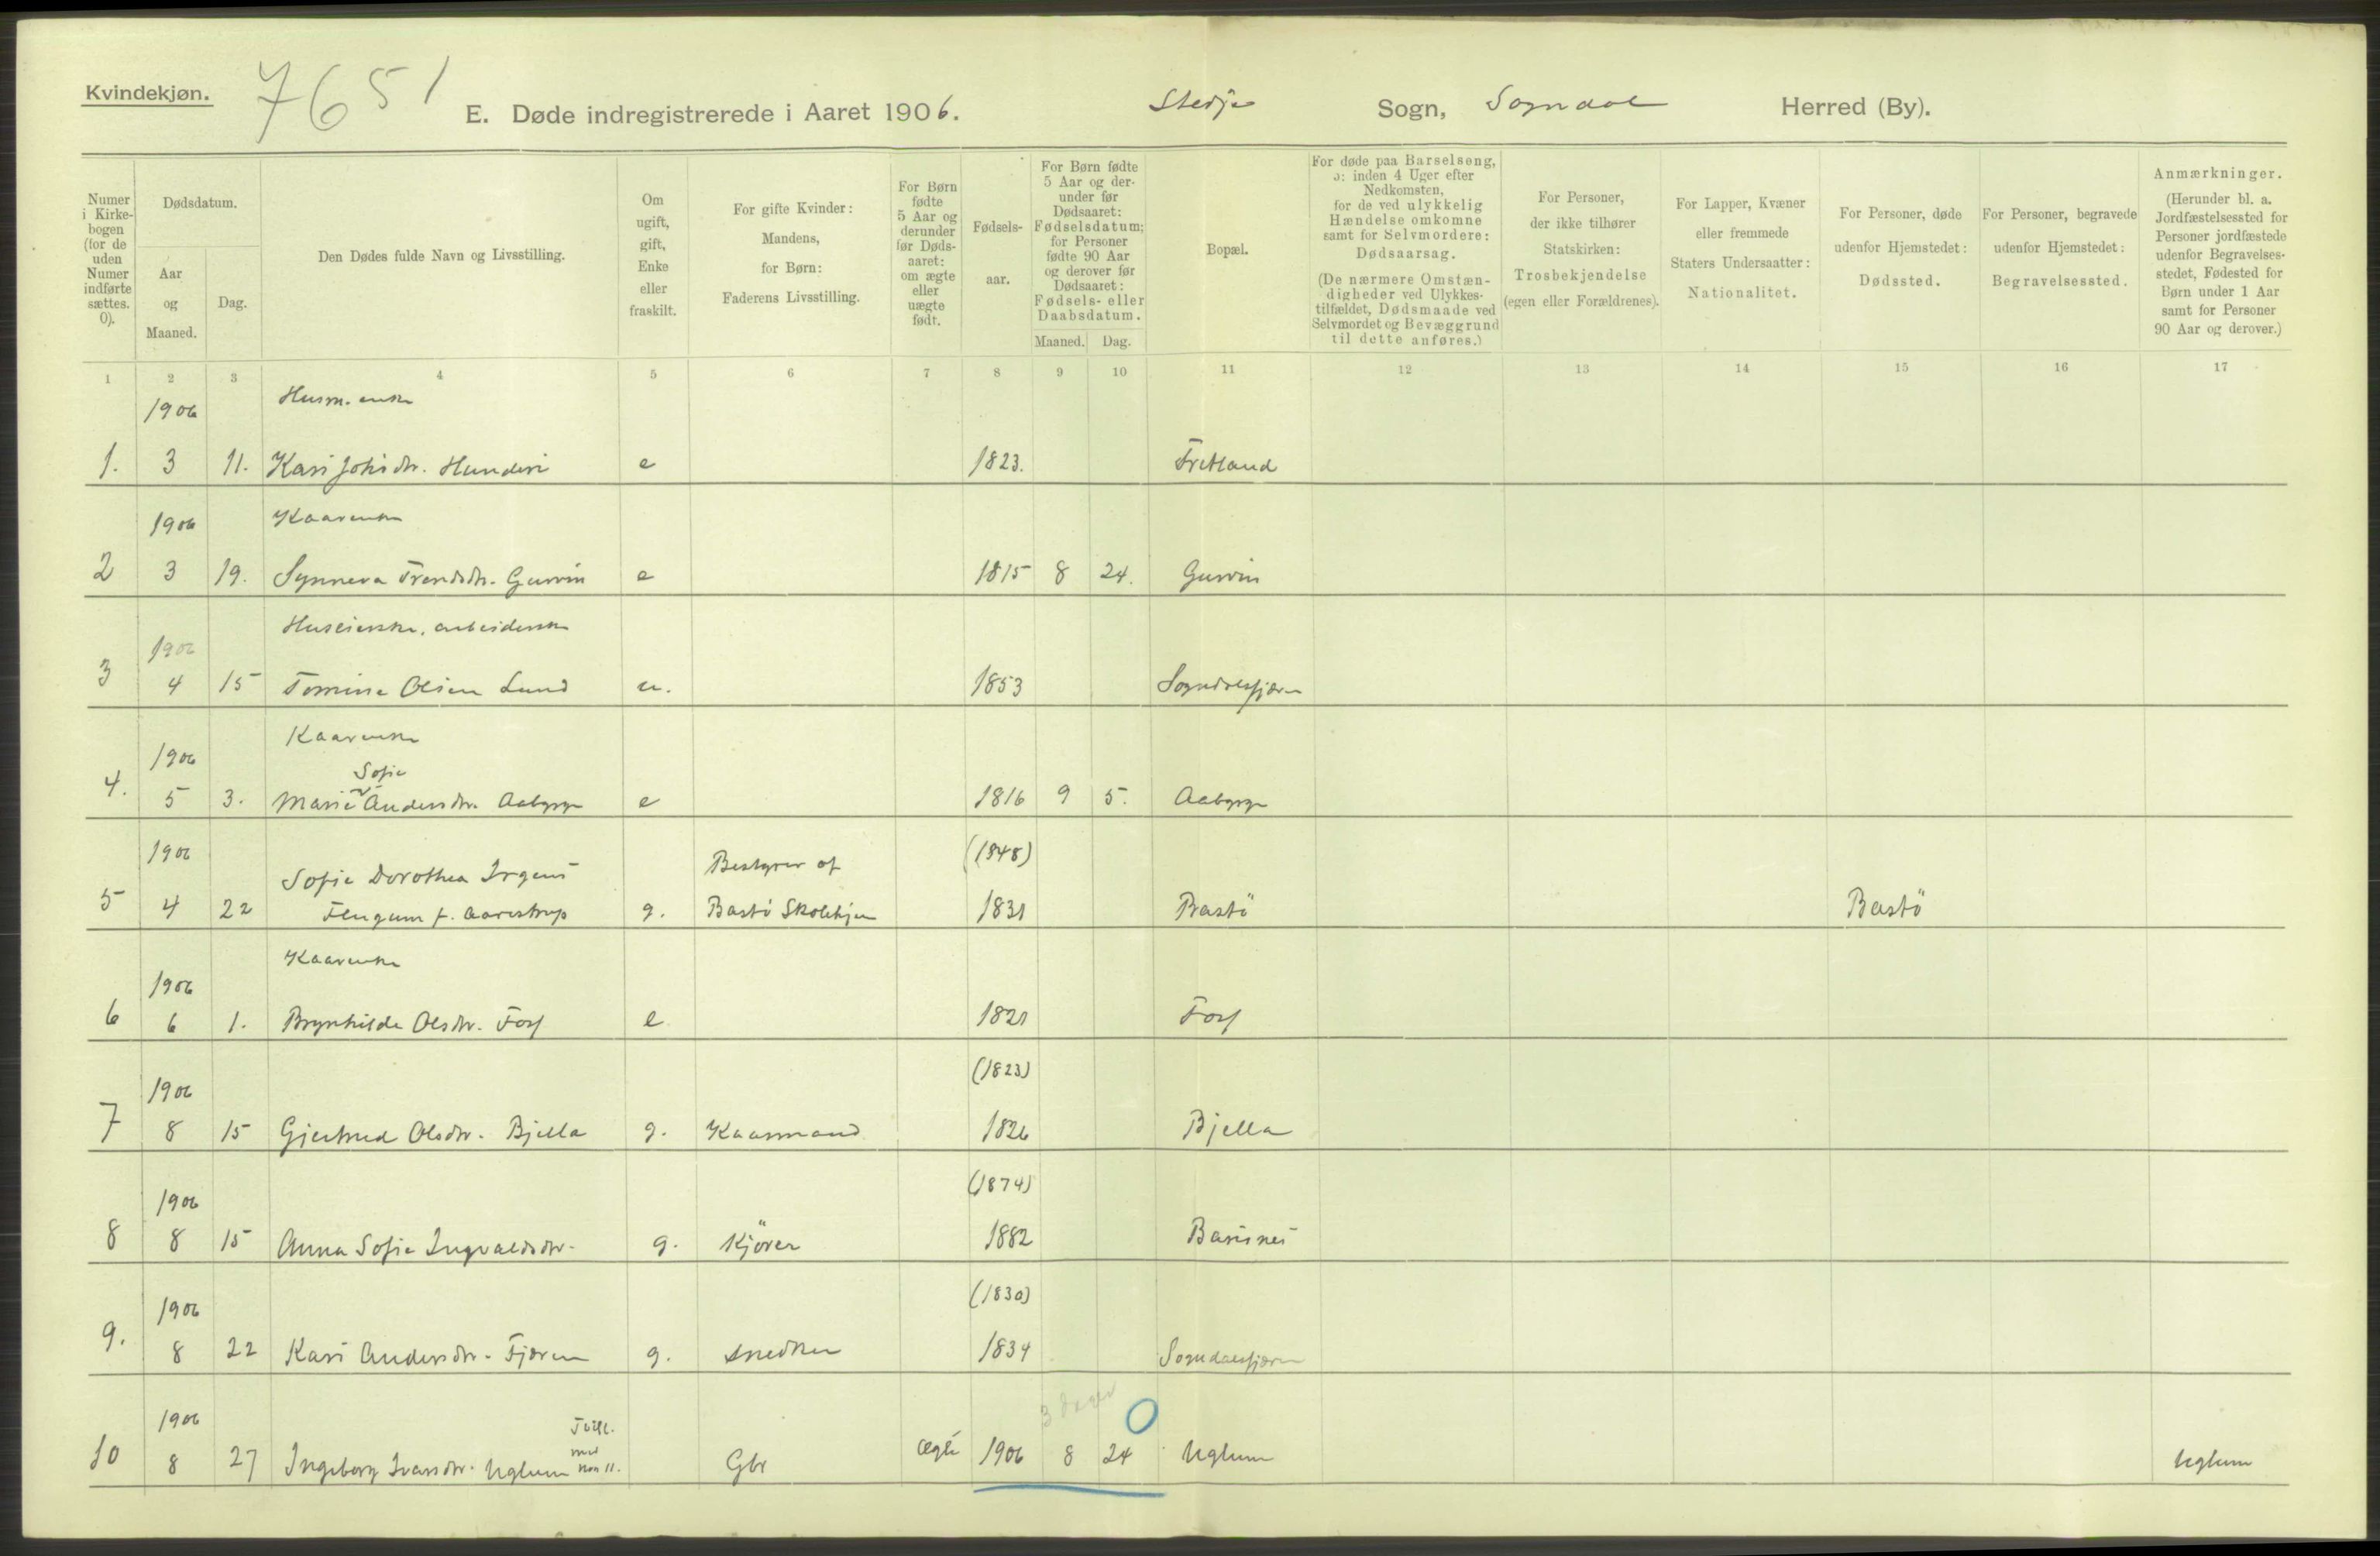 Kvindekjøn.
7651
E. Døde indregistrerede i Aaret 1906.
Stedje Sogn, Sogndal Herred (By).
Numer i Kirkebogen (for de uden Numer indførte sættes. 0).
Dødsdatum.
Aar og Maaned.
Dag.
Den Dødes fulde Navn og Livsstilling.
Om ugift, gift, Enke eller fraskilt.
For gifte Kvinder: Mandens, for Børn: Faderens Livsstilling.
For Børn fødte 5 Aar og derunder før Dødsaaret: om ægte eller uægte født.
Fødselsaar.
For Børn fødte 5 Aar og derunder før Dødsaaret: Fødselsdatum; for Personer fødte 90 Aar og derover før Dødsaaret: Fødsels- eller Daabsdatum.
Maaned. Dag.
Bopæl.
For døde paa Barselseng, ɔ: inden 4 Uger efter Nedkomsten, for de ved ulykkelig Hændelse omkomne samt for Selvmordere: Dødsaarsag.
(De nærmere Omstændigheder ved Ulykkestilfældet, Dødsmaade ved Selvmordet og Bevæggrund til dette anføres.)
For Personer, der ikke tilhører Statskirken: Trosbekjendelse (egen eller Forældrenes).
For Lapper, Kvæner eller fremmede Staters Undersaatter: Nationalitet.
For Personer, døde udenfor Hjemstedet: Dødssted.
For Personer, begravede udenfor Hjemstedet: Begravelsessted.
Anmærkninger.
(Herunder bl. a. Jordfæstelsessted for Personer jordfæstede udenfor Begravelsesstedet, Fødested for Børn under 1 Aar samt for Personer 90 Aar og derover.)
1 2 3 4 5 6 7 8 9 10 11 12 13 14 15 16 17
1906 Husm. enke
1. 3 11. Kari Johsdtr. Hunderi e 1823. Fretland
1906 Kaarenke
2 3 19. Synneva Trondsdtr. Gurvin e 1815 8 24. Gurvin
Huseierske, arbeiderske
1906
3 4 15 Tomine Olsen Lund u. 1853 Sogndalsfjæren
Kaarenke
1906 Sofie
4. 5 3. Marie Andersdtr. Aabyrge e 1816 9 5. Aabyrge
1906 Sofie Dorothea Irgens Bestyrer af (1848)
5 4 22 Flugum f. Aarestrup g. Bastö Skolehjem 1831 Bastö Bastö
Kaarenke
1906
6 6 1. Brynhilde Olsdtr. Foss e 1821 Foss
1906 (1823)
7 8 15 Gjertrud Olsdtr. Bjella g. Kaarmand 1826 Bjella
1906 (1874)
8 8 15 Anna Sofie Ingvaldsdtr. g. Kjörer 1882 Barsnes
1906 (1830)
9. 8 22 Kari Andersdtr. Fjæren g. Snedker 1834 Sogndalsfjæren
1906 Tvill. 3 dager 0
med
10 8 27 Ingeborg Ivarsdtr. Uglum non 11. Gbr Ægte 1906 8 24 Uglum Uglum